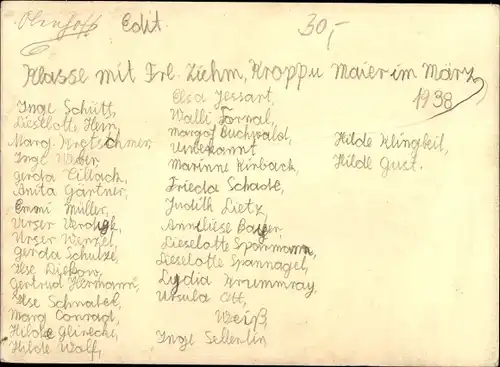 Edit
30,-
Klasse mit Frl. Ziehm, Kropp u Maier im März
1938
Inge Schütt,
Lieselott Hein,
Marg. Kretschmer,
Inge Weber
Gerda Cillach,
Anita Gärtner,
Emmi Müller,
Urser
Urser Wenzel,
Gerda Schulze,
Ilse Diekow,
Gertrud Hermann,
Ilse Schnabel,
Marg Conrad,
Hilde Glinecke,
Hilde Wolf,
Elsa Jessart,
Walli Fornal,
Margot Buchwald,
Unbekannt
Marinne Kirback,
Frieda Schade,
Judith Lietz,
Anneliese Bayer,
Lieselotte Spormann,
Lieselotte Spannagel,
Lydia Krummray,
Ursula Ott,
Weiß,
Inge Sellentin
Hilde Klingbeil,
Hilde Gust.